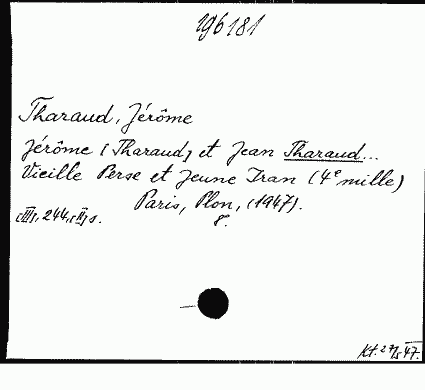 196181
Tharaud, Jérôme
Jérôme [Tharaud] et Jean Tharaud...
Vieille Perse et Jeune Iran (4e mille)
Paris, Plon, (1947).
[III], 244, [II] s. 8.